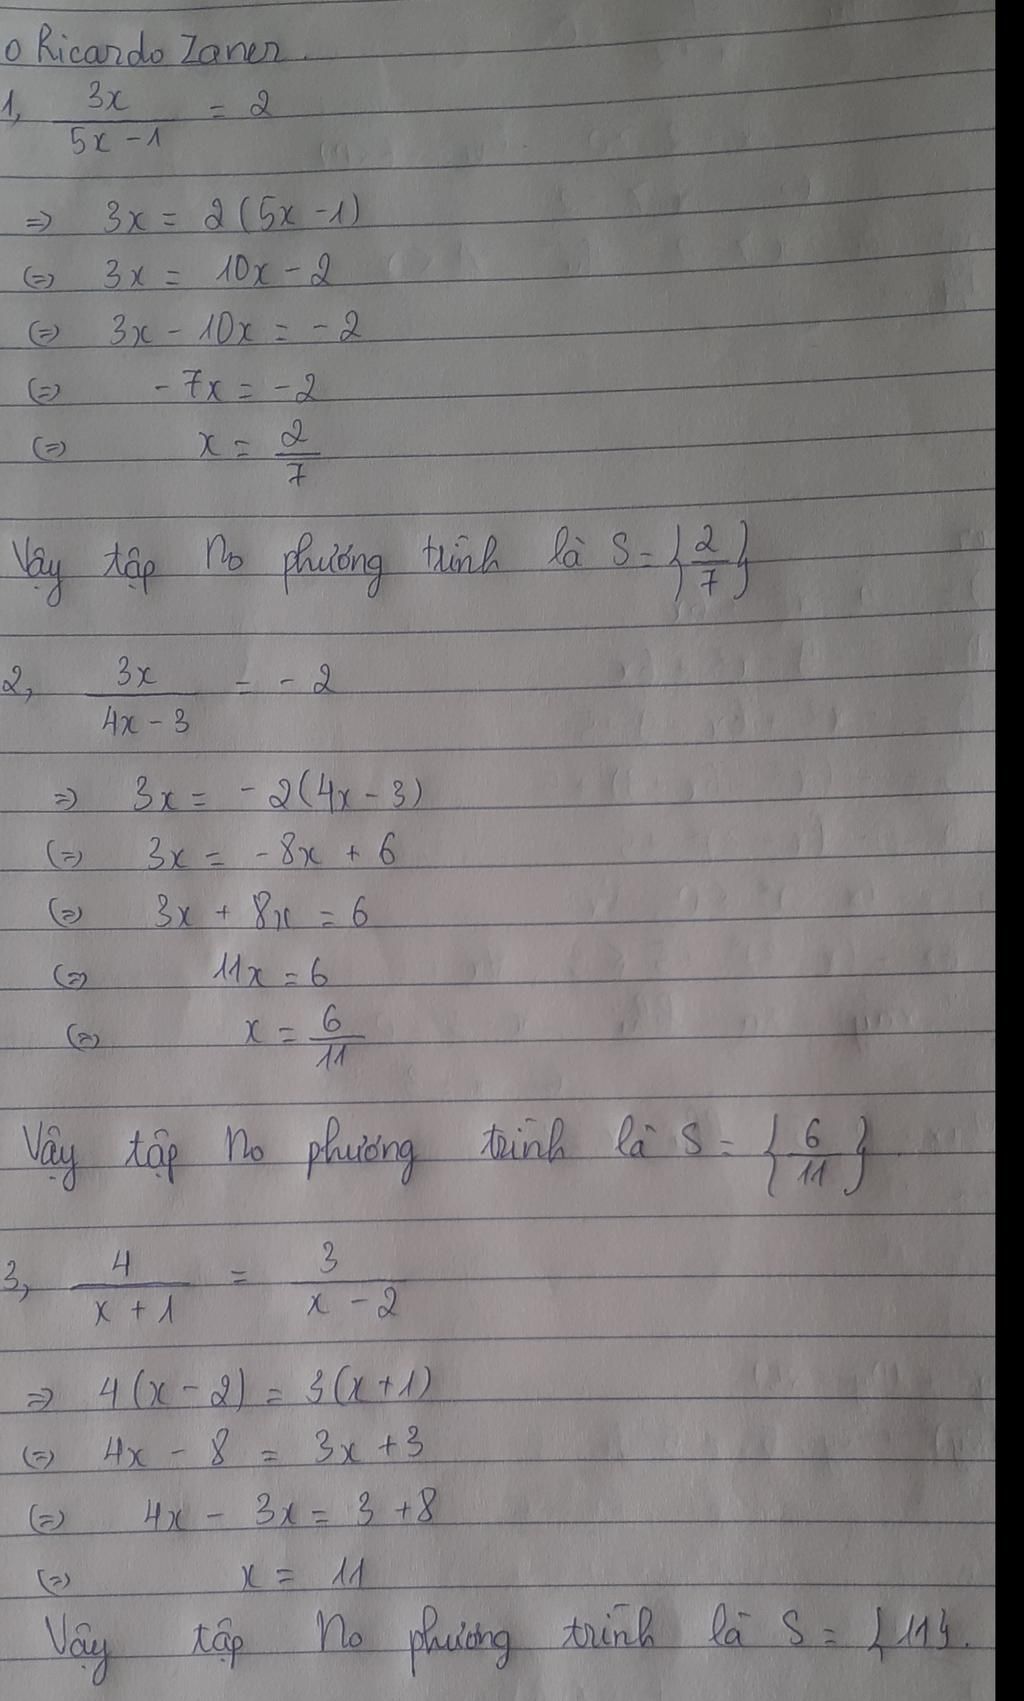 o Ricardo Zaner.
1, 3x / (5x - 1) = 2
=> 3x = 2(5x - 1)
(=) 3x = 10x - 2
(=) 3x - 10x = -2
(=) -7x = -2
(=) x = 2/7
Vậy tập No phương trình là S = {2/7}
2, 3x / (4x - 3) = -2
=> 3x = -2(4x - 3)
(=) 3x = -8x + 6
(=) 3x + 8x = 6
(=) 11x = 6
(=) x = 6/11
Vậy tập No phương trình là S = {6/11}
3, 4 / (x + 1) = 3 / (x - 2)
=> 4(x - 2) = 3(x + 1)
(=) 4x - 8 = 3x + 3
(=) 4x - 3x = 3 + 8
(=) x = 11
Vậy tập No phương trình là S = {11}.